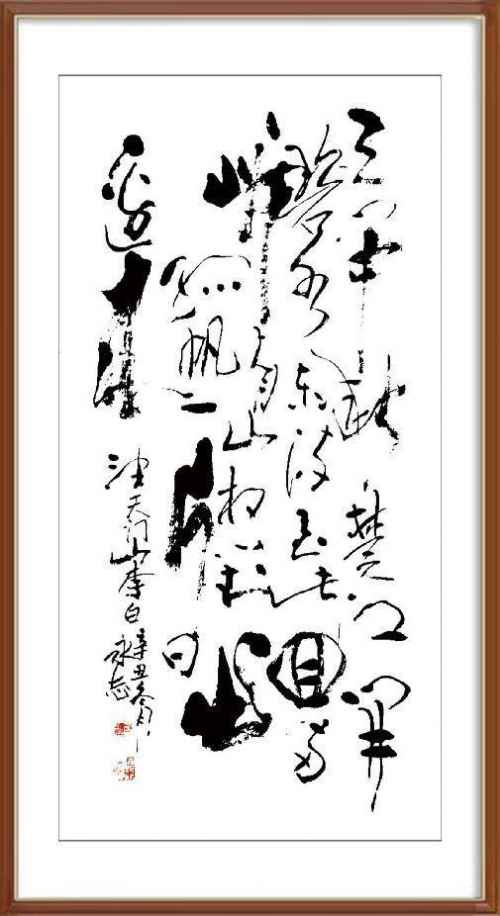 天门中断楚江开
碧水东流至此回两
岸青山相对出
孤帆一片日
边来
望天门山李白
辛丑
永志